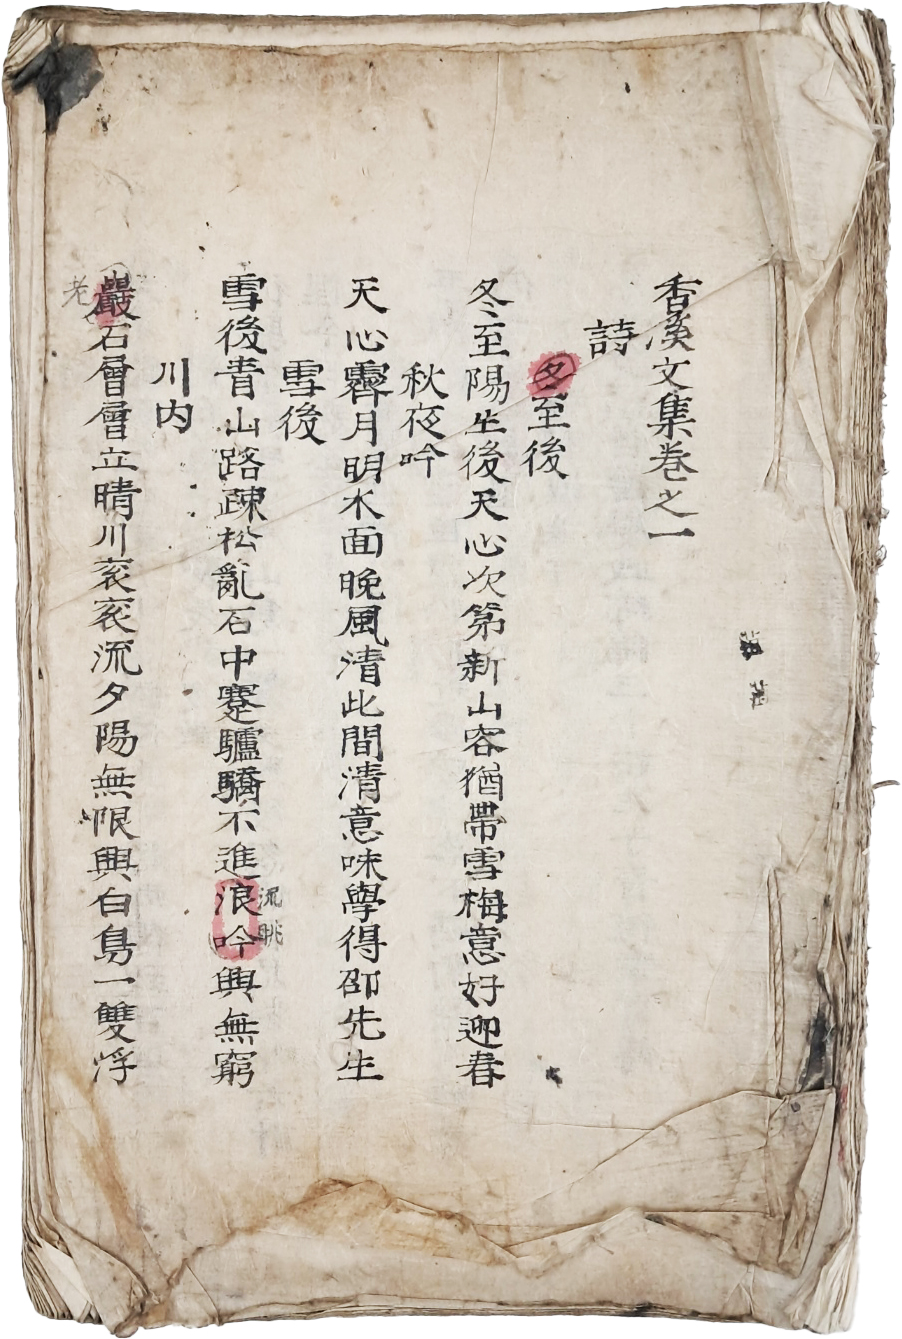 香溪文集卷之一
詩
冬至後
冬至陽生後天心次第新山容猶帶雪梅意好迎春
秋夜吟
天心霽月明水面晩風清此間清意味學得邵先生
雪後
雪後青山路疎松亂石中蹇驢驕不進浪吟興無窮
流眺
川內
巖石層層立晴川袞袞流夕陽無限興白鳥一雙浮
老